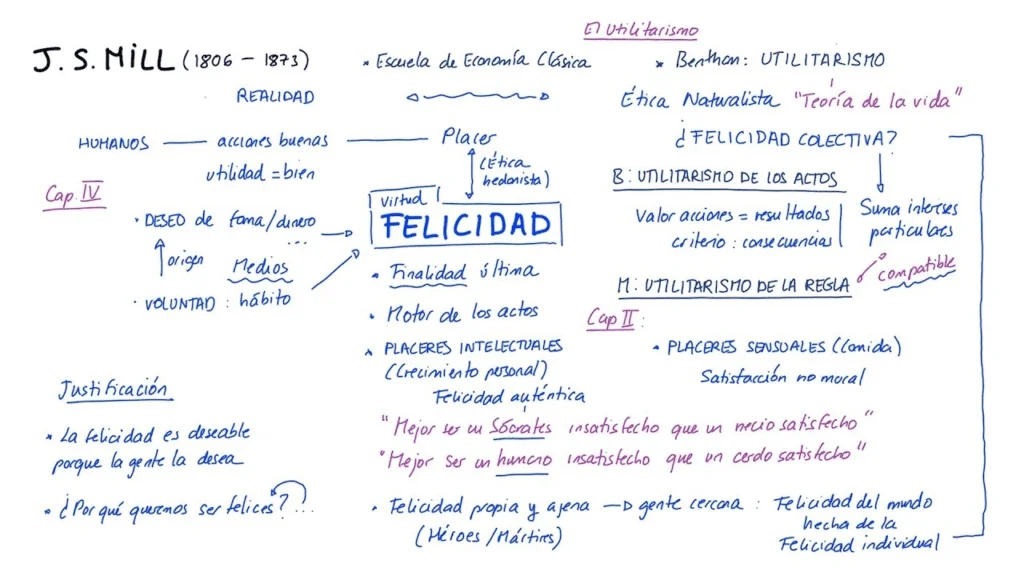 El Utilitarismo
J. S. MILL (1806 – 1873)
• Escuela de Economía Clásica
• Benthan: UTILITARISMO
REALIDAD
Ética Naturalista "Teoría de la vida"
HUMANOS — acciones buenas — Placer
¿FELICIDAD COLECTIVA?
utilidad = bien
(Ética
hedonista)
B: UTILITARISMO DE LOS ACTOS
Cap. IV
Virtud
FELICIDAD
• DESEO de fama/dinero
...
Valor acciones = resultados
criterio: consecuencias
Suma intereses
particulares
origen
Medios
• VOLUNTAD: hábito
• Finalidad última
compatible
M: UTILITARISMO DE LA REGLA
• Motor de los actos
Cap II:
• PLACERES INTELECTUALES
(Crecimiento personal)
Felicidad auténtica
• PLACERES SENSUALES (Comida)
Satisfacción no moral
Justificación
"Mejor ser un Sócrates insatisfecho que un necio satisfecho"
"Mejor ser un humano insatisfecho que un cerdo satisfecho"
• La felicidad es deseable
porque la gente la desea
• ¿Por qué queremos ser felices? ...
• Felicidad propia y ajena → gente cercana: Felicidad del mundo
(Héroes/Mártires)
hecha de la
Felicidad individual